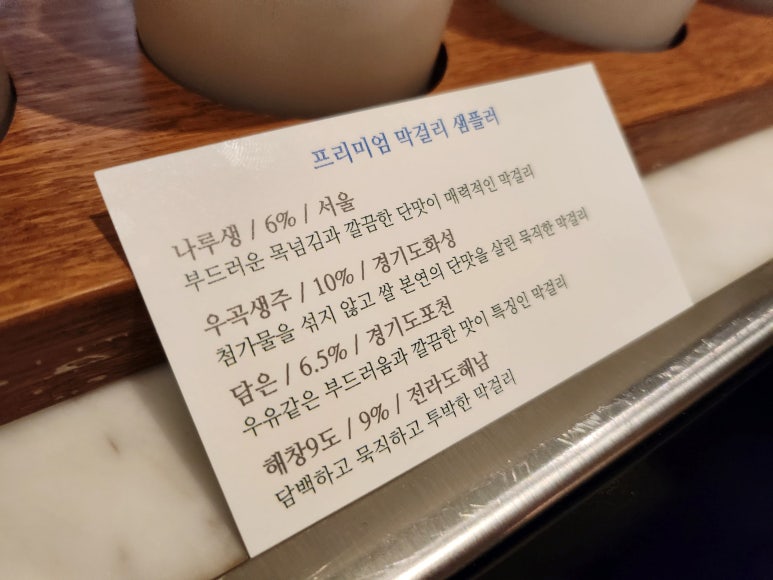 프리미엄 막걸리 샘플러
나루생 / 6% / 서울
부드러운 목넘김과 깔끔한 단맛이 매력적인 막걸리
우곡생주 / 10% / 경기도화성
첨가물을 섞지 않고 쌀 본연의 단맛을 살린 묵직한 막걸리
담은 / 6.5% / 경기도포천
우유같은 부드러움과 깔끔한 맛이 특징인 막걸리
해창9도 / 9% / 전라도해남
담백하고 묵직하고 투박한 막걸리